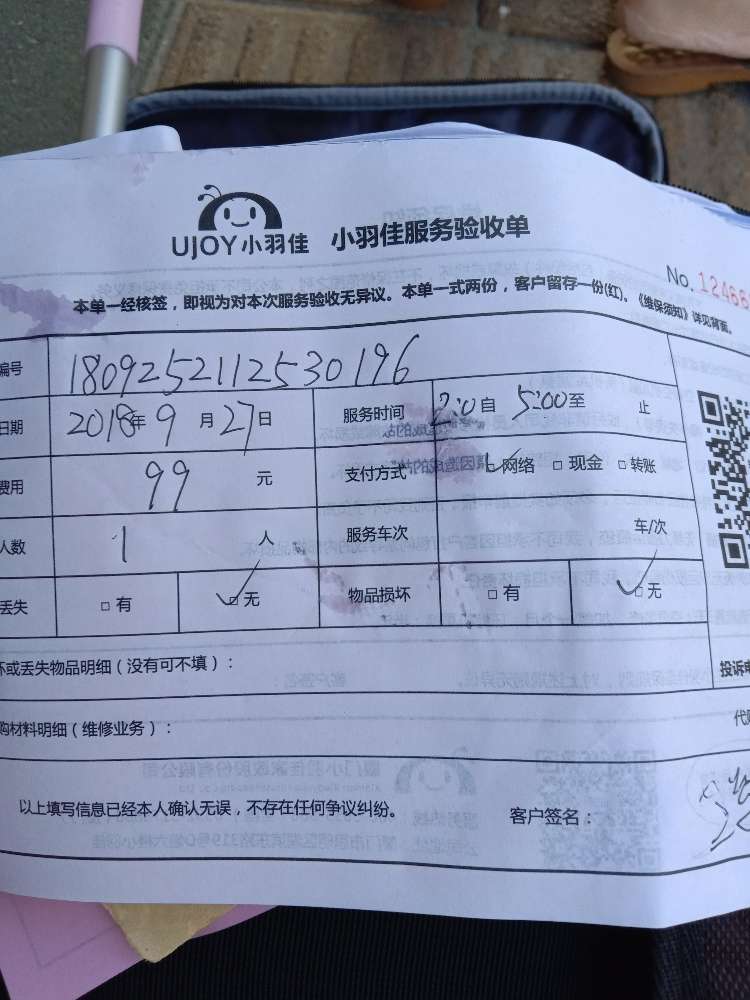 UJOY小羽佳 小羽佳服务验收单
No. 12466
本单一经核签，即视为对本次服务验收无异议。本单一式两份，客户留存一份(红)。《维保须知》详见背面。
编号 1809252112530196
日期 2018年9月27日 服务时间 2:0自 5:00至 止
费用 99 元 支付方式 网络 □ 现金 □ 转账
人数 1 人 服务车次 车/次
丢失 □ 有 □ 无 物品损坏 □ 有 □ 无
坏或丢失物品明细（没有可不填）：
投诉电
购材料明细（维修业务）：
代
以上填写信息已经本人确认无误，不存在任何争议纠纷。 客户签名：